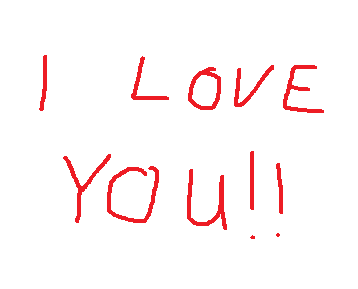 I LOVE
YOU!!